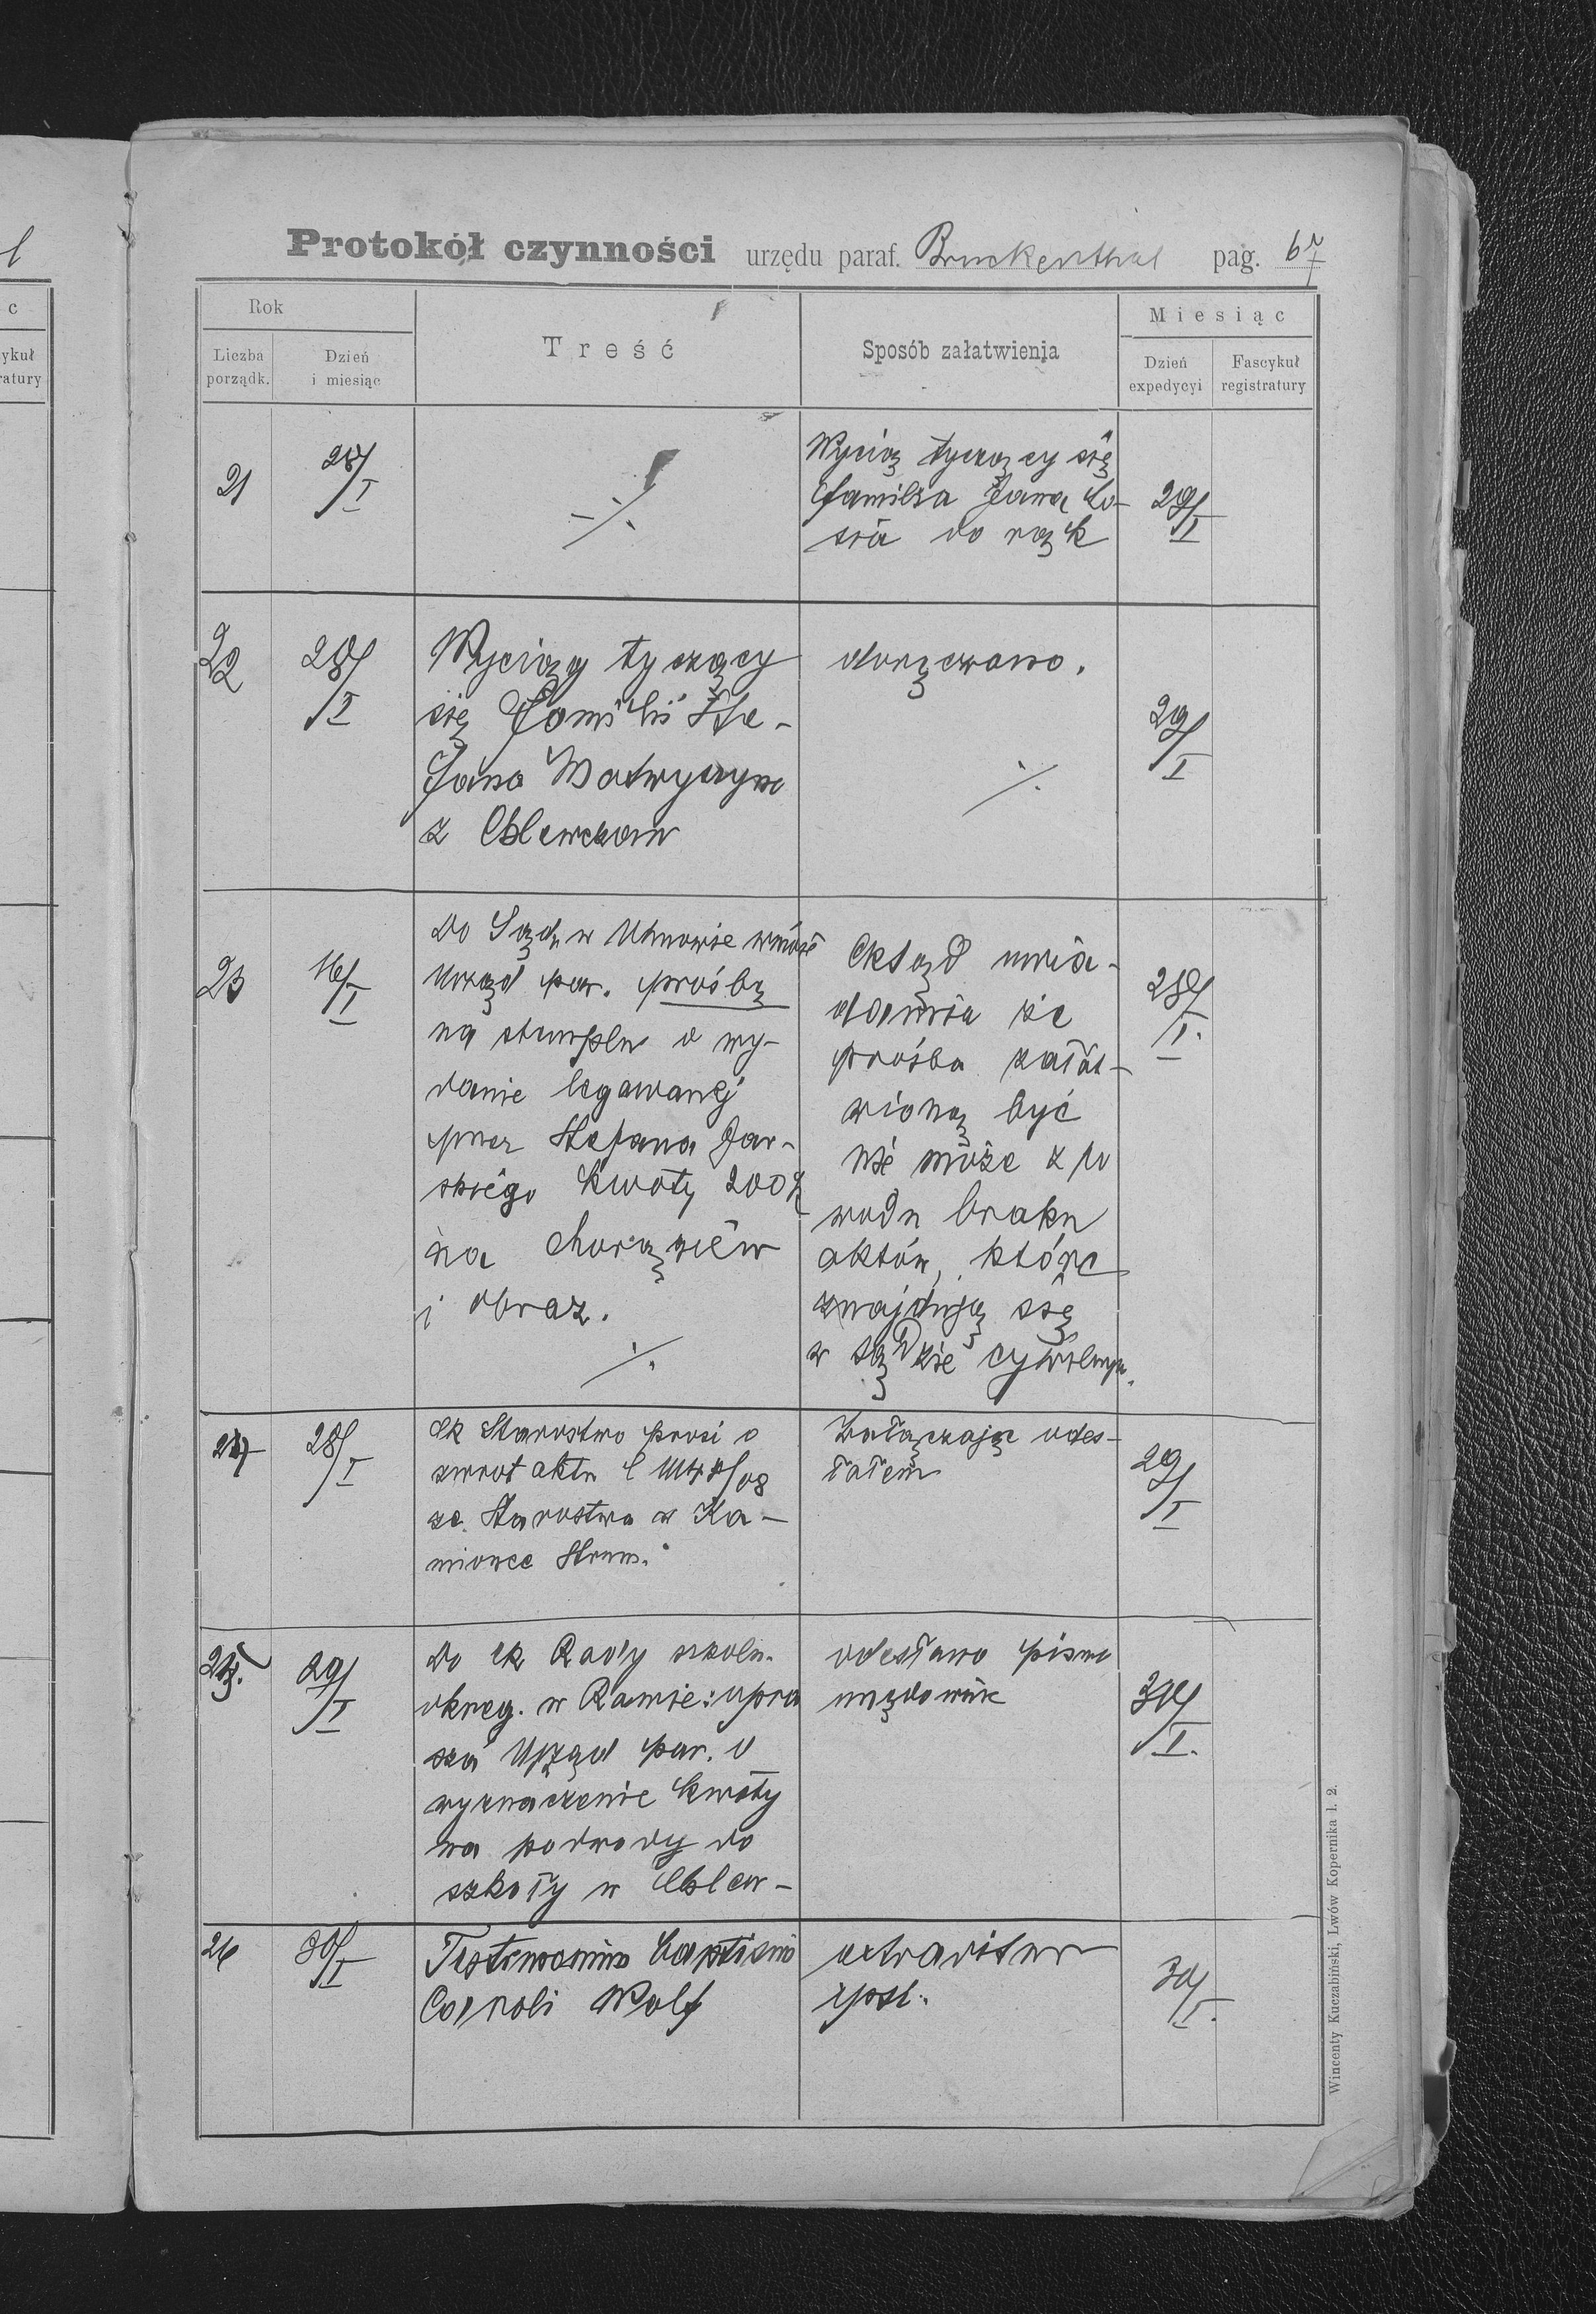 Protokół czynności urzędu paraf. Bruckenthal pag. 67
Rok
Liczba porządk.
Dzień i miesiąc
Treść
Sposób załatwienia
Miesiąc
Dzień expedycyi
Fascykuł registratury
21
28/I
-/.
Wyciąg tyczący się
familia Jana Ło-
sia do rąk
29/I
22
28/I
Wyciąg tyczący
się familii Ste-
fana
z Chlewczan
doręczono.
/.
29/I
23
16/I
Do Sądu w Uhnowie wnosi
Urząd par. prośbę
na stemplu o wy-
danie legowanej
przez Stefana Jar-
skiego kwoty 200 K
na chorągiew
i obraz.
/.
CkSąd uwia-
damia że
prośba załat-
wioną być
nie może z po
wodu braku
aktów, które
znajdują się
w sądzie cywilnym.
28/I.
24
28/I
Ck Starostwo prosi o
zwrot aktu l
ze Starostwa z Ka-
mionce Strum.
Załączając odes-
łałem
29/I
25.
29/I
Do ck Rady szkoln.
okręg. w Rawie: upra
sza Urząd par. o
wyznaczenie kwoty
na podwody do
szkoły w Chlew-
odesłano pismo
urzędownie
30/I.
26
30/I
Testimonium baptismi
Caroli Wolf
extraditur
ipsi.
30/I.
Wincenty Kuczabiński, Lwów Kopernika l. 2.
ykuł
ratury
c